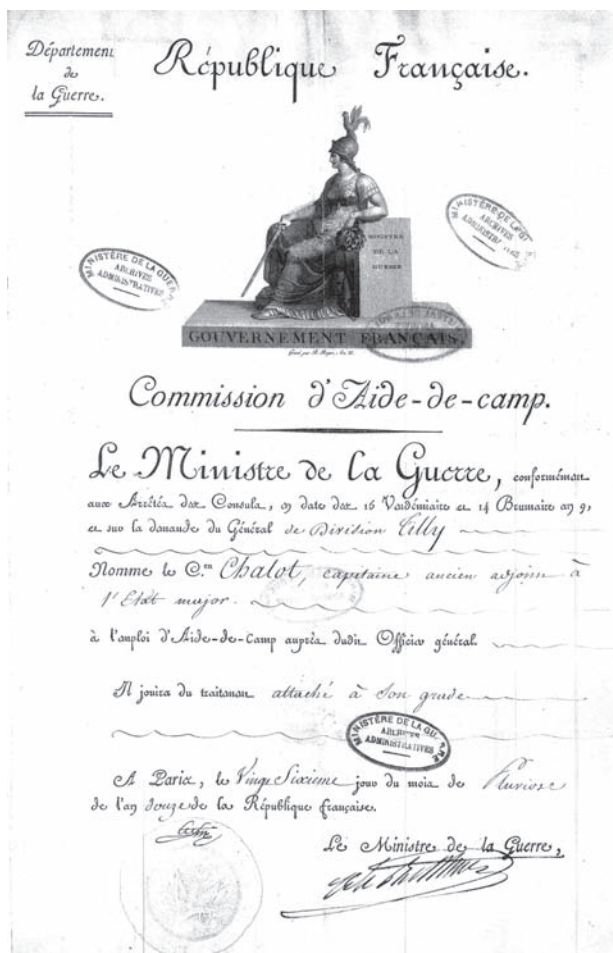 Département
de
la Guerre.
République Française.
MINISTÈRE DE LA GUERRE
ARCHIVES
ADMINISTRATIVES
MINISTÈRE DE LA GUERRE
ARCHIVES
ADMINISTRATIVES
MINISTRE
DE LA
GUERRE
GOUVERNEMENT FRANÇAIS.
Gravé par B. Roger, An
Commission d'Aide-de-camp.
Le Ministre de la Guerre, conformément
aux Arrêtés des Consuls, en date des 16 Vendémiaire et 14 Brumaire an 9,
et sur la demande du Général de Division Tilly
Nomme le C.en Chalot, capitaine ancien adjoint à
l'Etat major.
à l'emploi d'Aide-de-Camp auprès dudit Officier général
Il jouira du traitement attaché à son grade
MINISTÈRE DE LA GUERRE
ARCHIVES
ADMINISTRATIVES
A Paris, le Vingt Sixieme jour du mois de Pluviose
de l'an douze de la République française.
Le Ministre de la Guerre,